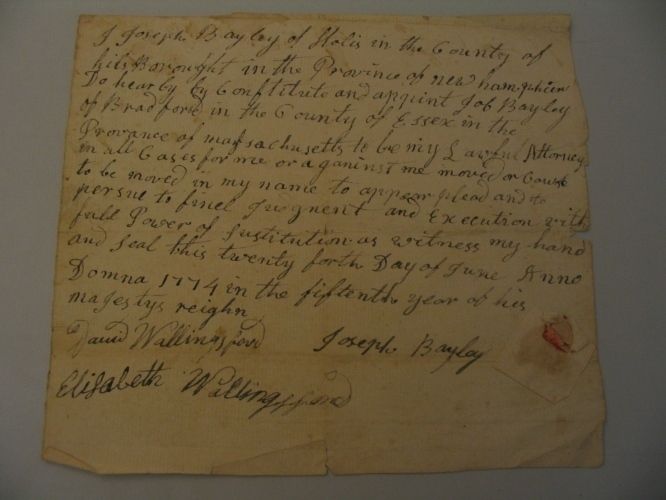 I Joseph Bayley of Holis in the County of
hilsBorought in the Province of new hampshier
Do hearby by Constitute and appint Job Bayley
of Bradford in the County of Essex in the
Provance of massachusetts to be my Lawful Attorney
in all Cases for me or aganinst me moved or
to be moved in my name to appear plead and to
persue to finel Judgment and Execution with
full Power of Sustitution as witness my hand
and seal this twenty forth Day of June Anno
Domna 1774 in the fifteenth year of his
majestys reighn
David Wallingsford Joseph Bayley
Elisabeth Wallingsford